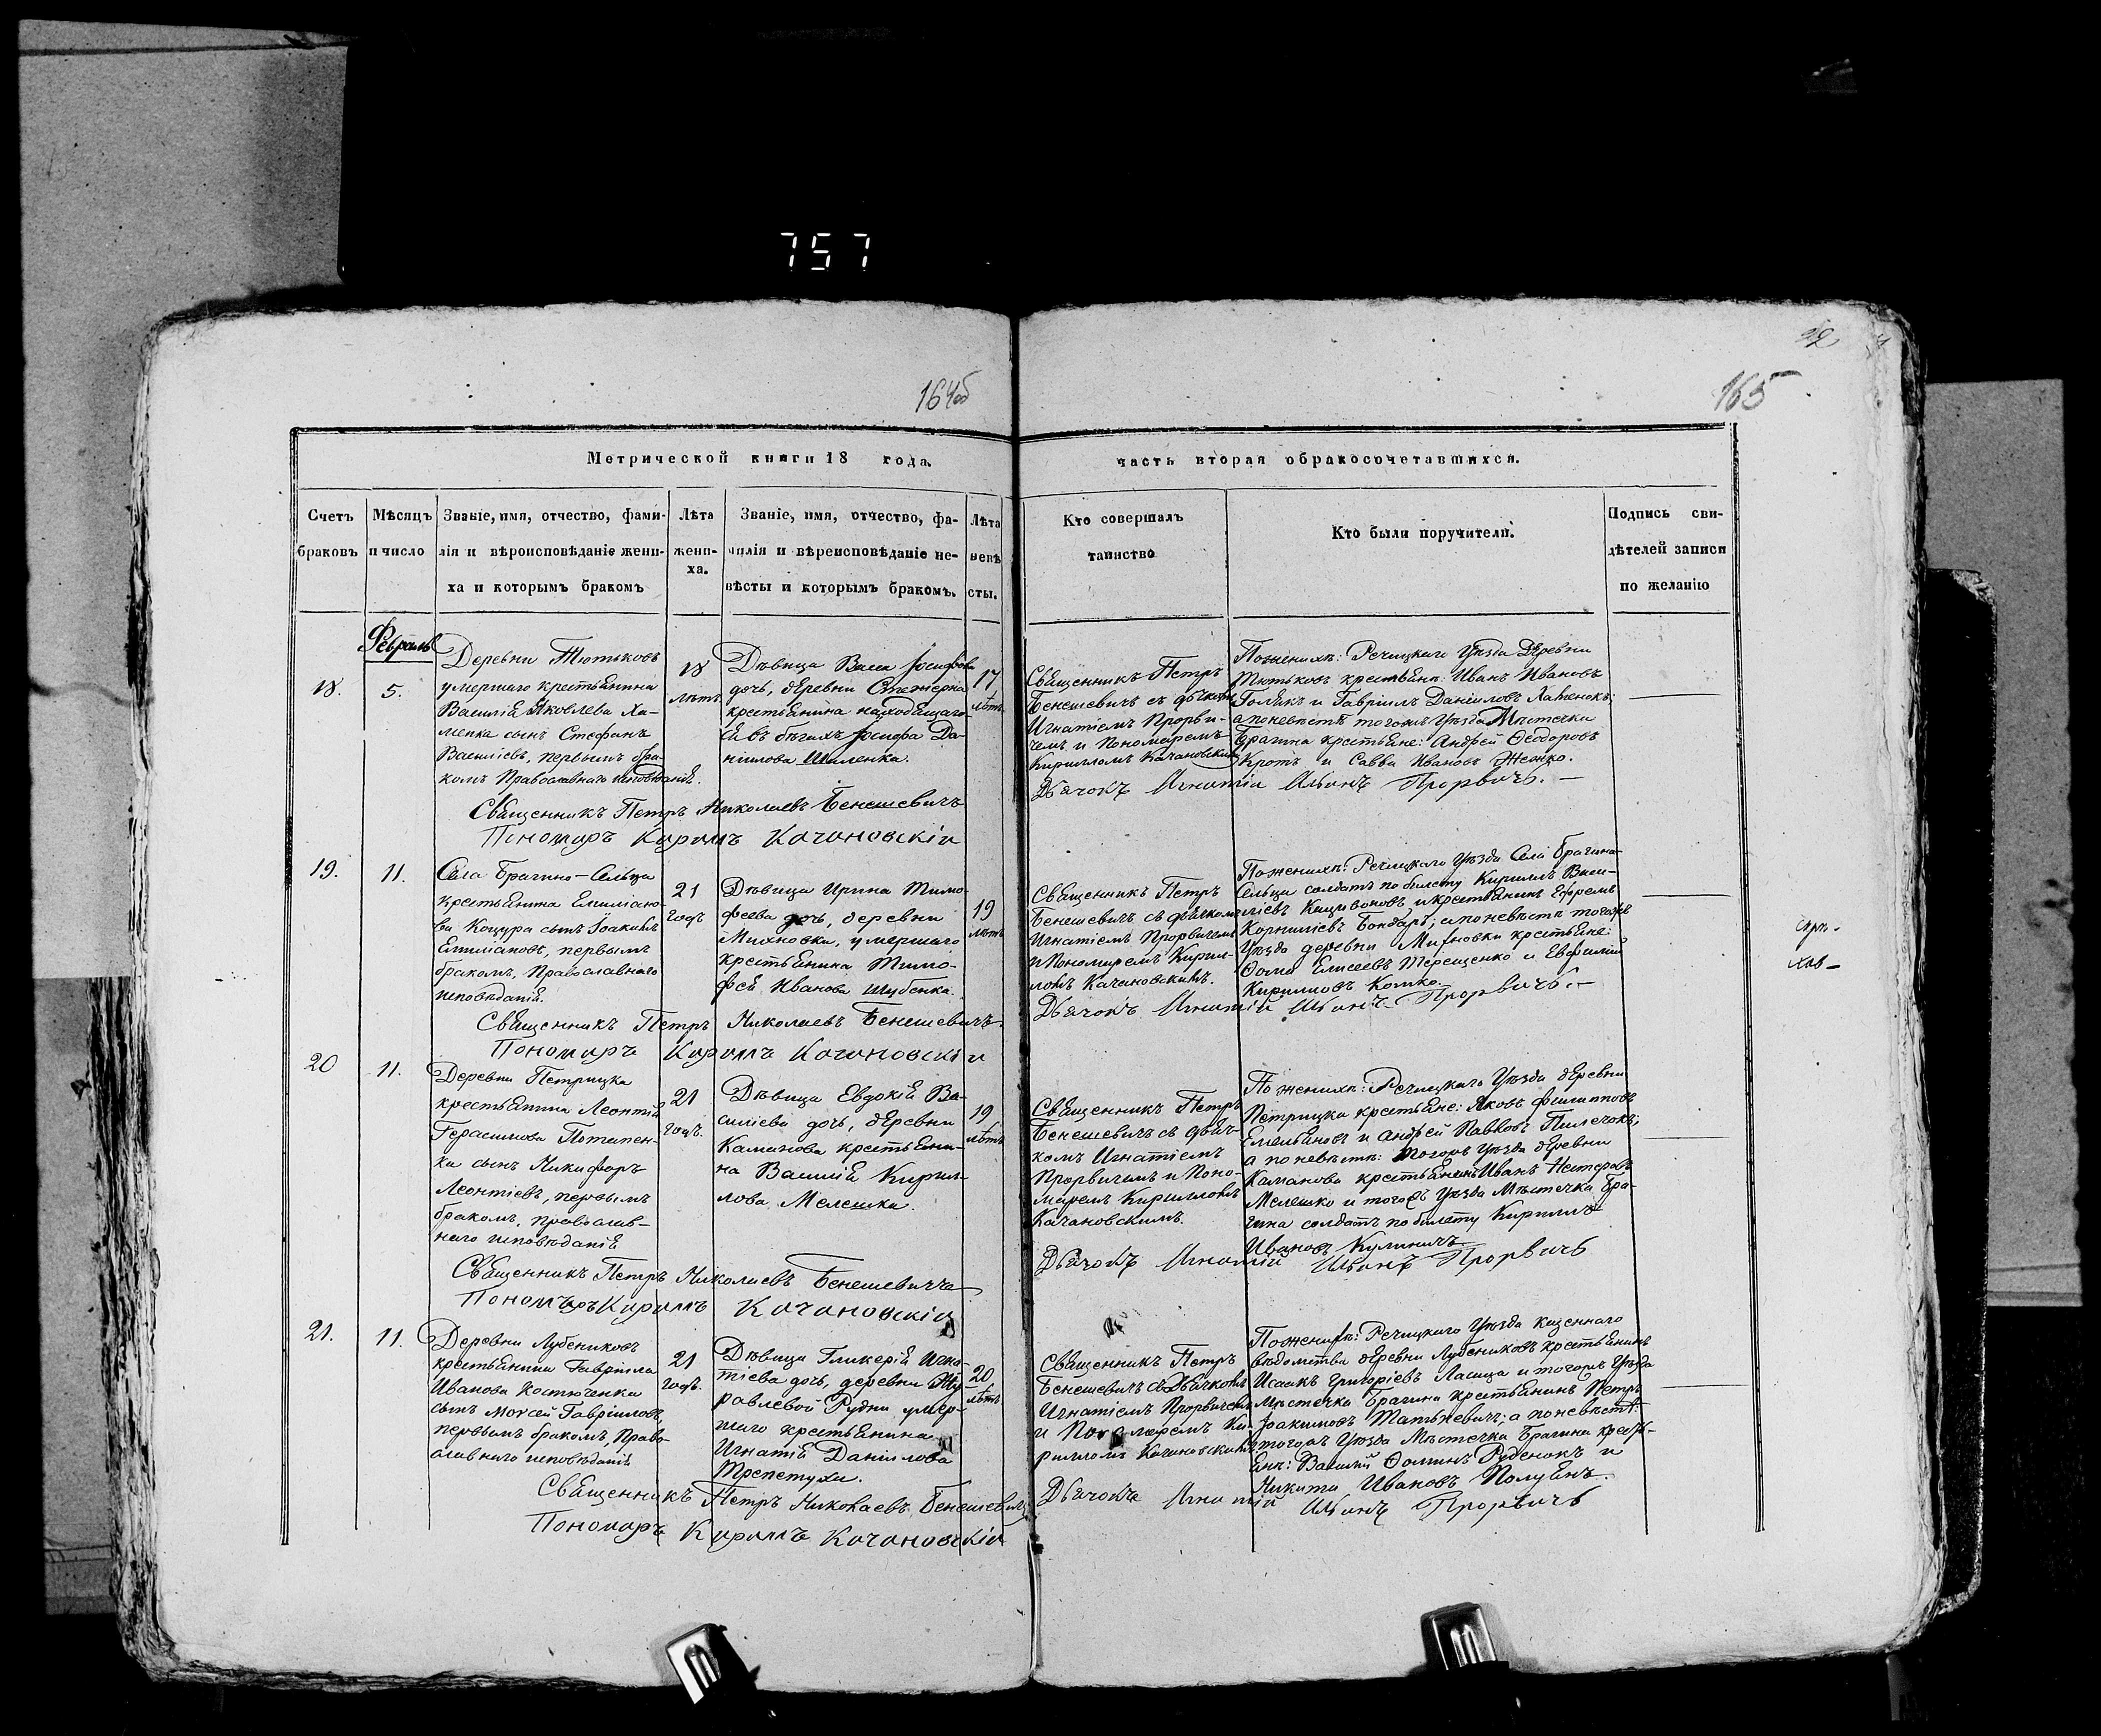 757
164об
165
Метрической книги 18 года.
часть вторая о бракосочетавшихся.
Счетъ браковъ
Мѣсяцъ и число
Званіе, имя, отчество, фами-
лія и вѣроисповѣданіе жени-
ха и которымъ бракомъ
Лѣта
жени-
ха.
Званіе, имя, отчество, фа-
милія и вѣроисповѣданіе не-
вѣсты и которымъ бракомъ.
Лѣта
невѣ
сты.
Кто совершалъ
таинство
Кто были поручители.
Подпись сви-
дѣтелей записи
по желанію
Февраль
18.
5.
Деревни Тютьковъ
умершаго крестьянина
Василія Яковлева Ха-
менка сынъ Стефанъ
Васильевъ, первымъ бра-
комъ Православнаго исповѣданія.
18
лѣтъ
Дѣвица Васса Іосифова
дочь, деревни Стежерна
крестьянина находящаго-
ся въ бѣгахъ Іосифа Да-
ніилова Шиленка.
17
лѣтъ
Священникъ Петръ
Бенешевичъ съ дьячкомъ
Игнатіемъ Прорви-
чемъ и Пономаремъ
Кирилломъ Качановскимъ
По женихѣ: Речицкаго Уѣзда Деревни
Тютьковъ крестьяне: Иванъ Ивановъ
Голикъ и Гавріилъ Даніиловъ Хаменокъ;
а по невѣстѣ тогожъ Уѣзда Мѣстечка
Брагина крестьяне: Андрей Ѳеодоровъ
Кротъ и Савва Ивановъ Жежко.
Дьячокъ Игнатій Ивановъ Прорвичь.
Священникъ Петръ Николаевъ Бенешевичъ
Пономаръ Кирилъ Качановскій
19.
11.
Села Брагино-Сельца
крестьянина Емиліано-
ва Коцура сынъ Іоакимъ
Емиліановъ, первымъ
бракомъ, Православнаго
исповѣданія.
21
годъ
Дѣвица Ирина Тимо-
феева дочь, деревни
Михновки, умершаго
крестьянина Тимо-
фея Иванова Шубенка.
19
лѣтъ
Священникъ Петръ
Бенешевичъ съ дьячкомъ
Игнатіемъ Прорвичемъ
и Пономаремъ Кирил-
ломъ Качановскимъ.
По женихѣ: Речицкаго Уѣзда Села Брагина-
Сельца солдатъ по билету Кириллъ Васи-
ліевъ и крестьянинъ Ефремъ
Корниліевъ Бондарь; а по невѣстѣ тогожъ
Уѣзда деревни Михновки крестьяне:
Ѳома Елисеевъ Терещенко и Евфимій
Кириловъ Кошко.
Дьячокъ Игнатій Ивановъ Прорвичь.
Священникъ Петръ Николаевъ Бенешевичъ
Пономаръ Кирилъ Качановскій
20
11.
Деревни Петрицка
крестьянина Леонтія
Герасимова Потапен-
ка сынъ Никифоръ
Леонтіевъ, первымъ
бракомъ, православ-
наго исповѣданія
21
годъ.
Дѣвица Евдокія Ва-
силіева дочь, деревни
Каманова крестьяни-
на Василія Кирил-
лова Мелешка.
19
лѣтъ
Священникъ Петръ
Бенешевичъ съ дьяч-
комъ Игнатіемъ
Прорвичемъ и Поно-
маремъ Кирилломъ
Качановскимъ.
По женихѣ: Речицкаго Уѣзда деревни
Петрицка крестьяне: Яковъ Филиповъ
Емельяновъ и Андрей Павловъ Пилечокъ;
а по невѣстѣ: тогожъ Уѣзда деревни
Каманова крестьянинъ Иванъ Нестеровъ
Мелешко и тогожъ Уѣзда Мѣстечка Бра-
гина солдатъ по билету Кириллъ
Ивановъ Куликъ.
Дьячокъ Игнатій Ивановъ Прорвичь
Священникъ Петръ Николаевъ Бенешевичъ
Пономаръ Кирилъ Качановскій
21.
11.
Деревни Лубениковъ
крестьянина Гавріила
Иванова Костюченка
сынъ Моѵсей Гавріиловъ,
первымъ бракомъ, Право-
славнаго исповѣданія
21
годъ.
Дѣвица Гликерія Игна-
тіева дочь, деревни Жу-
равлевой Рудни умер-
шаго крестьянина
Игнатія Даніилова
Трепетухи.
20
лѣтъ
Священникъ Петръ
Бенешевичъ съ Дьячкомъ
Игнатіемъ Прорвичемъ
и Пономаремъ Ки-
рилломъ Качановскимъ
По женихѣ: Речицкаго Уѣзда казеннаго
вѣдомства деревни Лубениковъ крестьянинъ
Исаакъ Григоріевъ Ласица и тогожъ Уѣзда
Мѣстечка Брагина крестьянинъ Петръ
Іоакимовъ Татьневичь; а по невѣстѣ:
тогожъ Уѣзда Мѣстечка Брагина кресть-
яне: Василій Ѳоминъ Руденокъ и
Никита Ивановъ Полуянъ.
Дьячокъ Игнатій Ивановъ Прорвичь
Священникъ Петръ Николаевъ Бенешевичъ
Пономаръ Кирилъ Качановскій